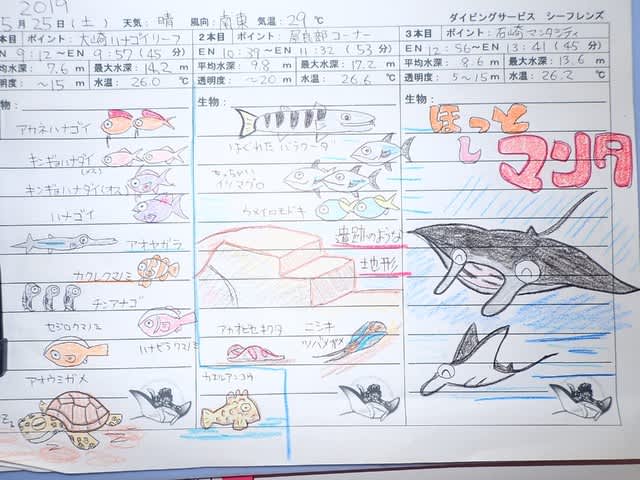 2019
5月25日（土） 天気：晴 風向：南東 気温：29℃
ダイビングサービス シーフレンズ
1本目 ポイント：大崎ハナゴイリーフ
EN 9:12～EN 9:57（45分）
平均水深：7.6m 最大水深：14.2m
透明度：～15m 水温：26.0℃
生物：
アカネハナゴイ
キンギョハナダイ(メス)
キンギョハナダイ(オス)
ハナゴイ
アオヤガラ
カクレクマノミ
チンアナゴ
セジロクマノミ
ハナビラクマノミ
アオウミガメ
2本目 ポイント：屋良部コーナー
EN 10:39～EN 11:32（53分）
平均水深：9.8m 最大水深：17.2m
透明度：～20m 水温：26.6℃
生物：
はぐれたバラクーダ
ちっちゃいイソマグロ
ウメイロモドキ
遺跡のような
地形
アカヒセキワタ
ニシキ
ツバメガメ
カエルアンコウ
3本目 ポイント：石崎マンタシティ
EN 12:56～EN 13:41（45分）
平均水深：8.6m 最大水深：13.6m
透明度：5～15m 水温：26.2℃
生物：
ほっと
し
マンタ